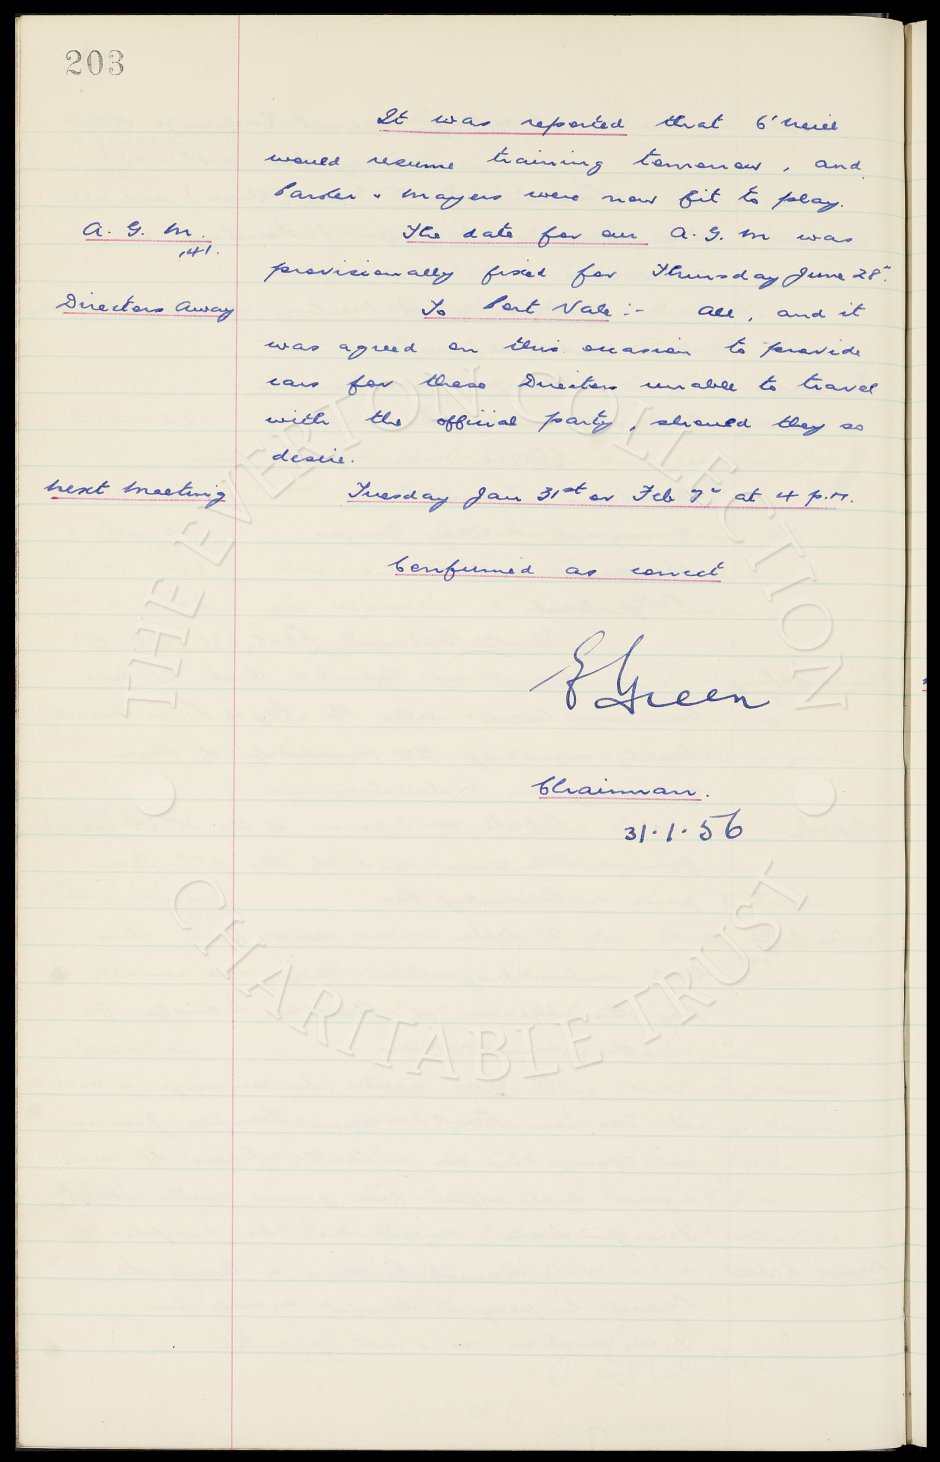 203
It was reported that O'Neill
would resume training tomorrow, and
Parker & Mayers were now fit to play.
A. G. M. The date for our A.G.M was
141.
provisionally fixed for Thursday June 28".
Directors Away To Port Vale :- All, and it
was agreed on this occasion to provide
cars for those Directors unable to travel
with the official party, should they so
desire.
Next Meeting Tuesday Jan 31st or Feb 7" at 4 p.m.
Confirmed as correct
E Green
Chairman.
31.1.56
THE EVERTON COLLECTION
CHARITABLE TRUST